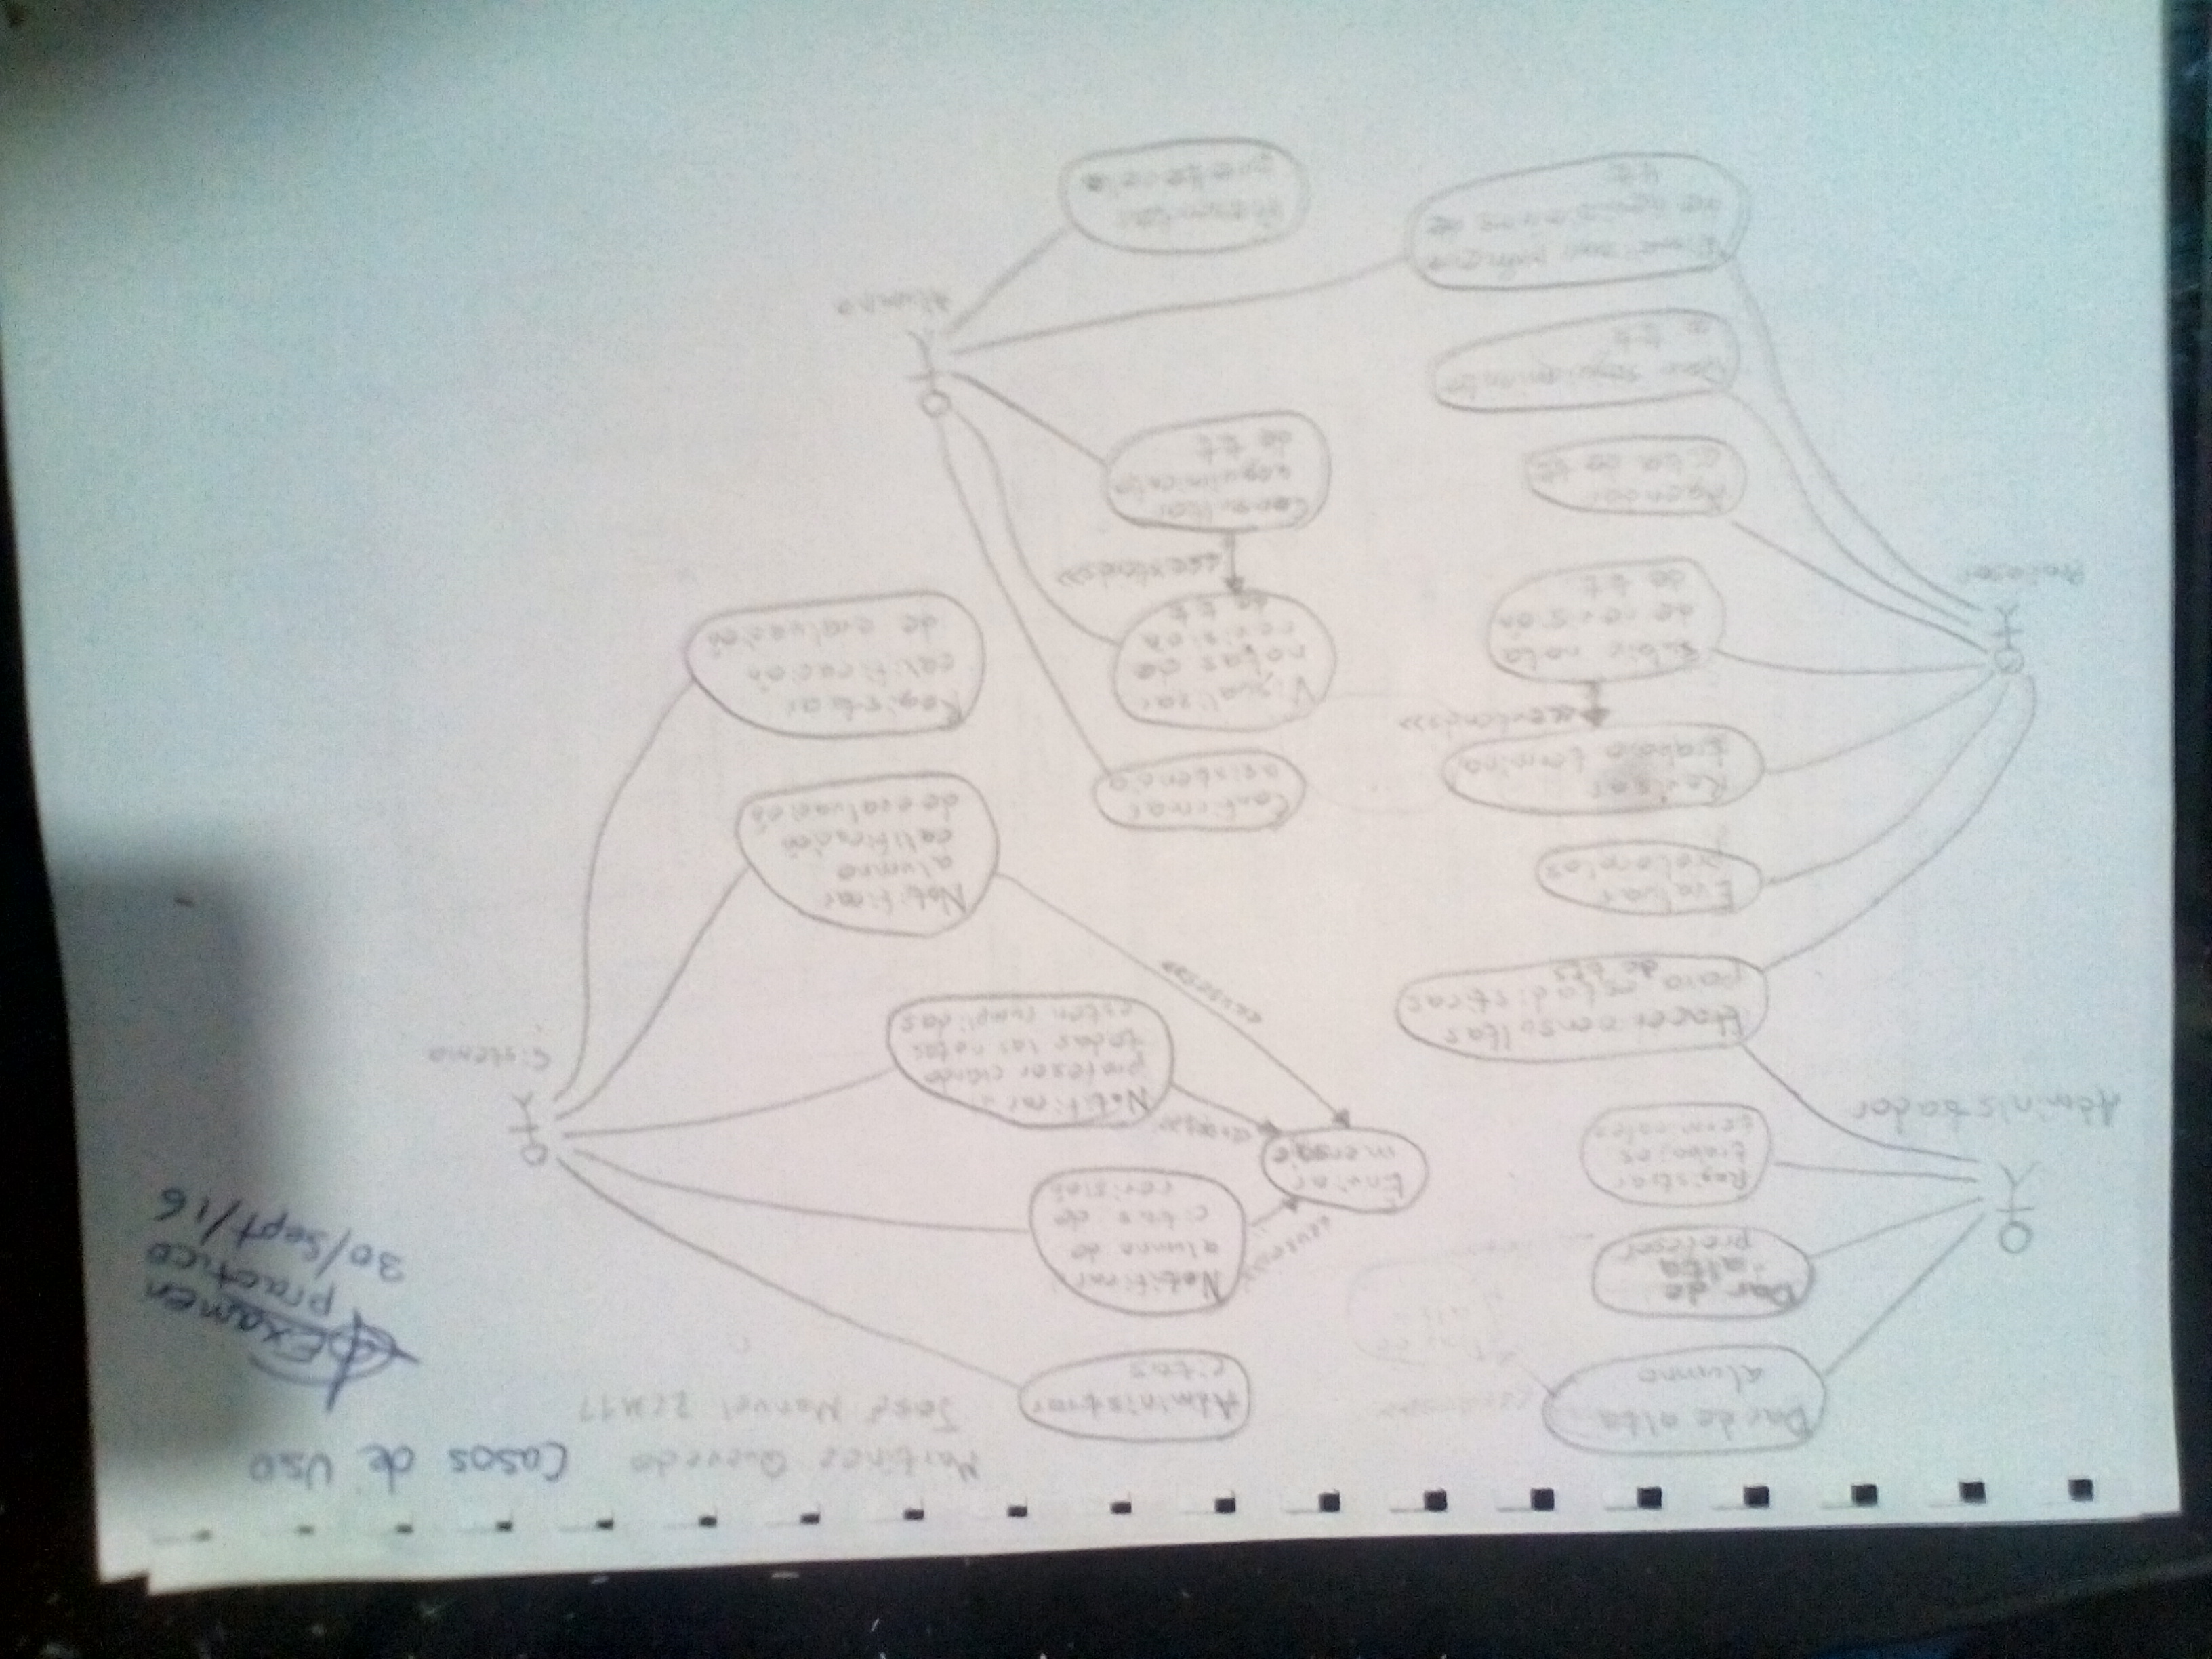 Martinez Quevedo
José Manuel 2CM11
Casos de Uso
Examen
practico
30/Sept/16
Dar de alta
alumno
Dar de
alta
profesor
Registrar
trabajos
terminales
Administrador
Hacer consultas
para estadisticas
de tts
Evaluar
protocolos
Revisar
trabajo terminal
<<extends>>
Subir nota
de revisión
de tt
Profesor
Agendar
cita de tt
Dar seguimiento
a tt
de revisiones de
tt
Administrar
citas
Notificar
alumno de
citas de
revisión
<<uses>>
Enviar
mensaje
<<uses>>
Notificar
profesor cuando
todas las notas
esten cumplidas
<<uses>>
Sistema
Notificar
alumno
calificación
de evaluación
Registrar
calificación
de evaluación
Confirmar
asistencia
Visualizar
notas de
revisión
de tt
<<extends>>
Consultar
seguimiento
de tt
Alumno
Presentar
protocolo